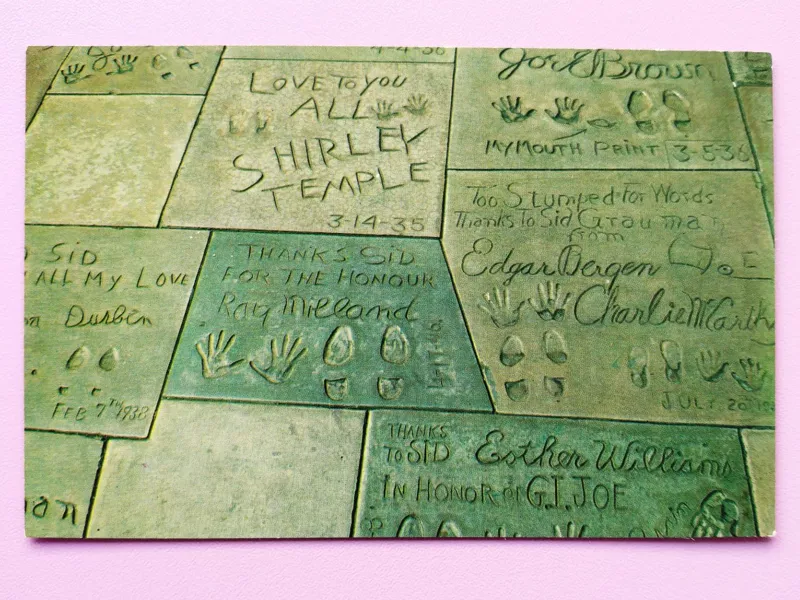 4-4-36
LOVE TO YOU
ALL
SHIRLEY
TEMPLE
3-14-35
Joe E Brown
MY MOUTH PRINT 3-5-36
Too Stumped For Words
Thanks To Sid Grauman
from
Edgar Bergen
Charlie McCarthy
JULY 20
SID
ALL MY LOVE
Durbin
FEB 7TH 1938
THANKS SID
FOR THE HONOUR
Ray Milland
an
THANKS
TO SID Esther Williams
IN HONOR OF G.I. JOE